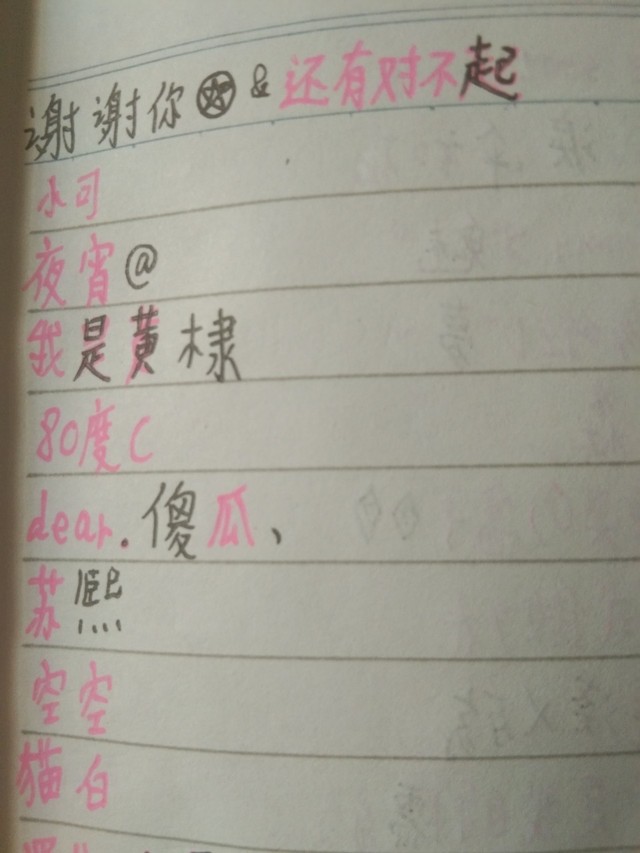 谢谢你 & 还有对不起
小可
夜宵@
我是黄棣
80度C
dear.傻瓜、
苏熙
空空
猫白